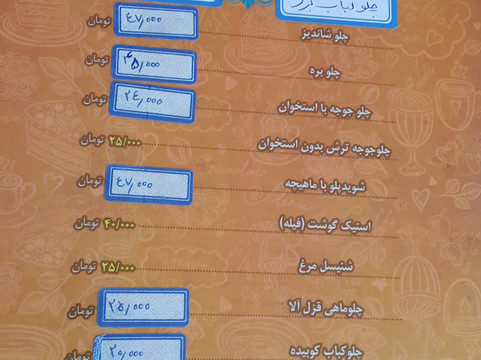 چلو کباب
چلو شاندیز ۴۷,۰۰۰ تومان
چلو بره ۴۵,۰۰۰ تومان
چلو جوجه با استخوان ۲۴,۰۰۰ تومان
چلوجوجه ترش بدون استخوان ۲۵/۰۰۰ تومان
شویدپلو با ماهیچه ۴۷,۰۰۰ تومان
استیک گوشت (فیله) ۴۰/۰۰۰ تومان
شنیسل مرغ ۲۵/۰۰۰ تومان
چلوماهی قزل آلا ۲۵,۰۰۰ تومان
چلوکباب کوبیده ۲۰,۰۰۰ تومان